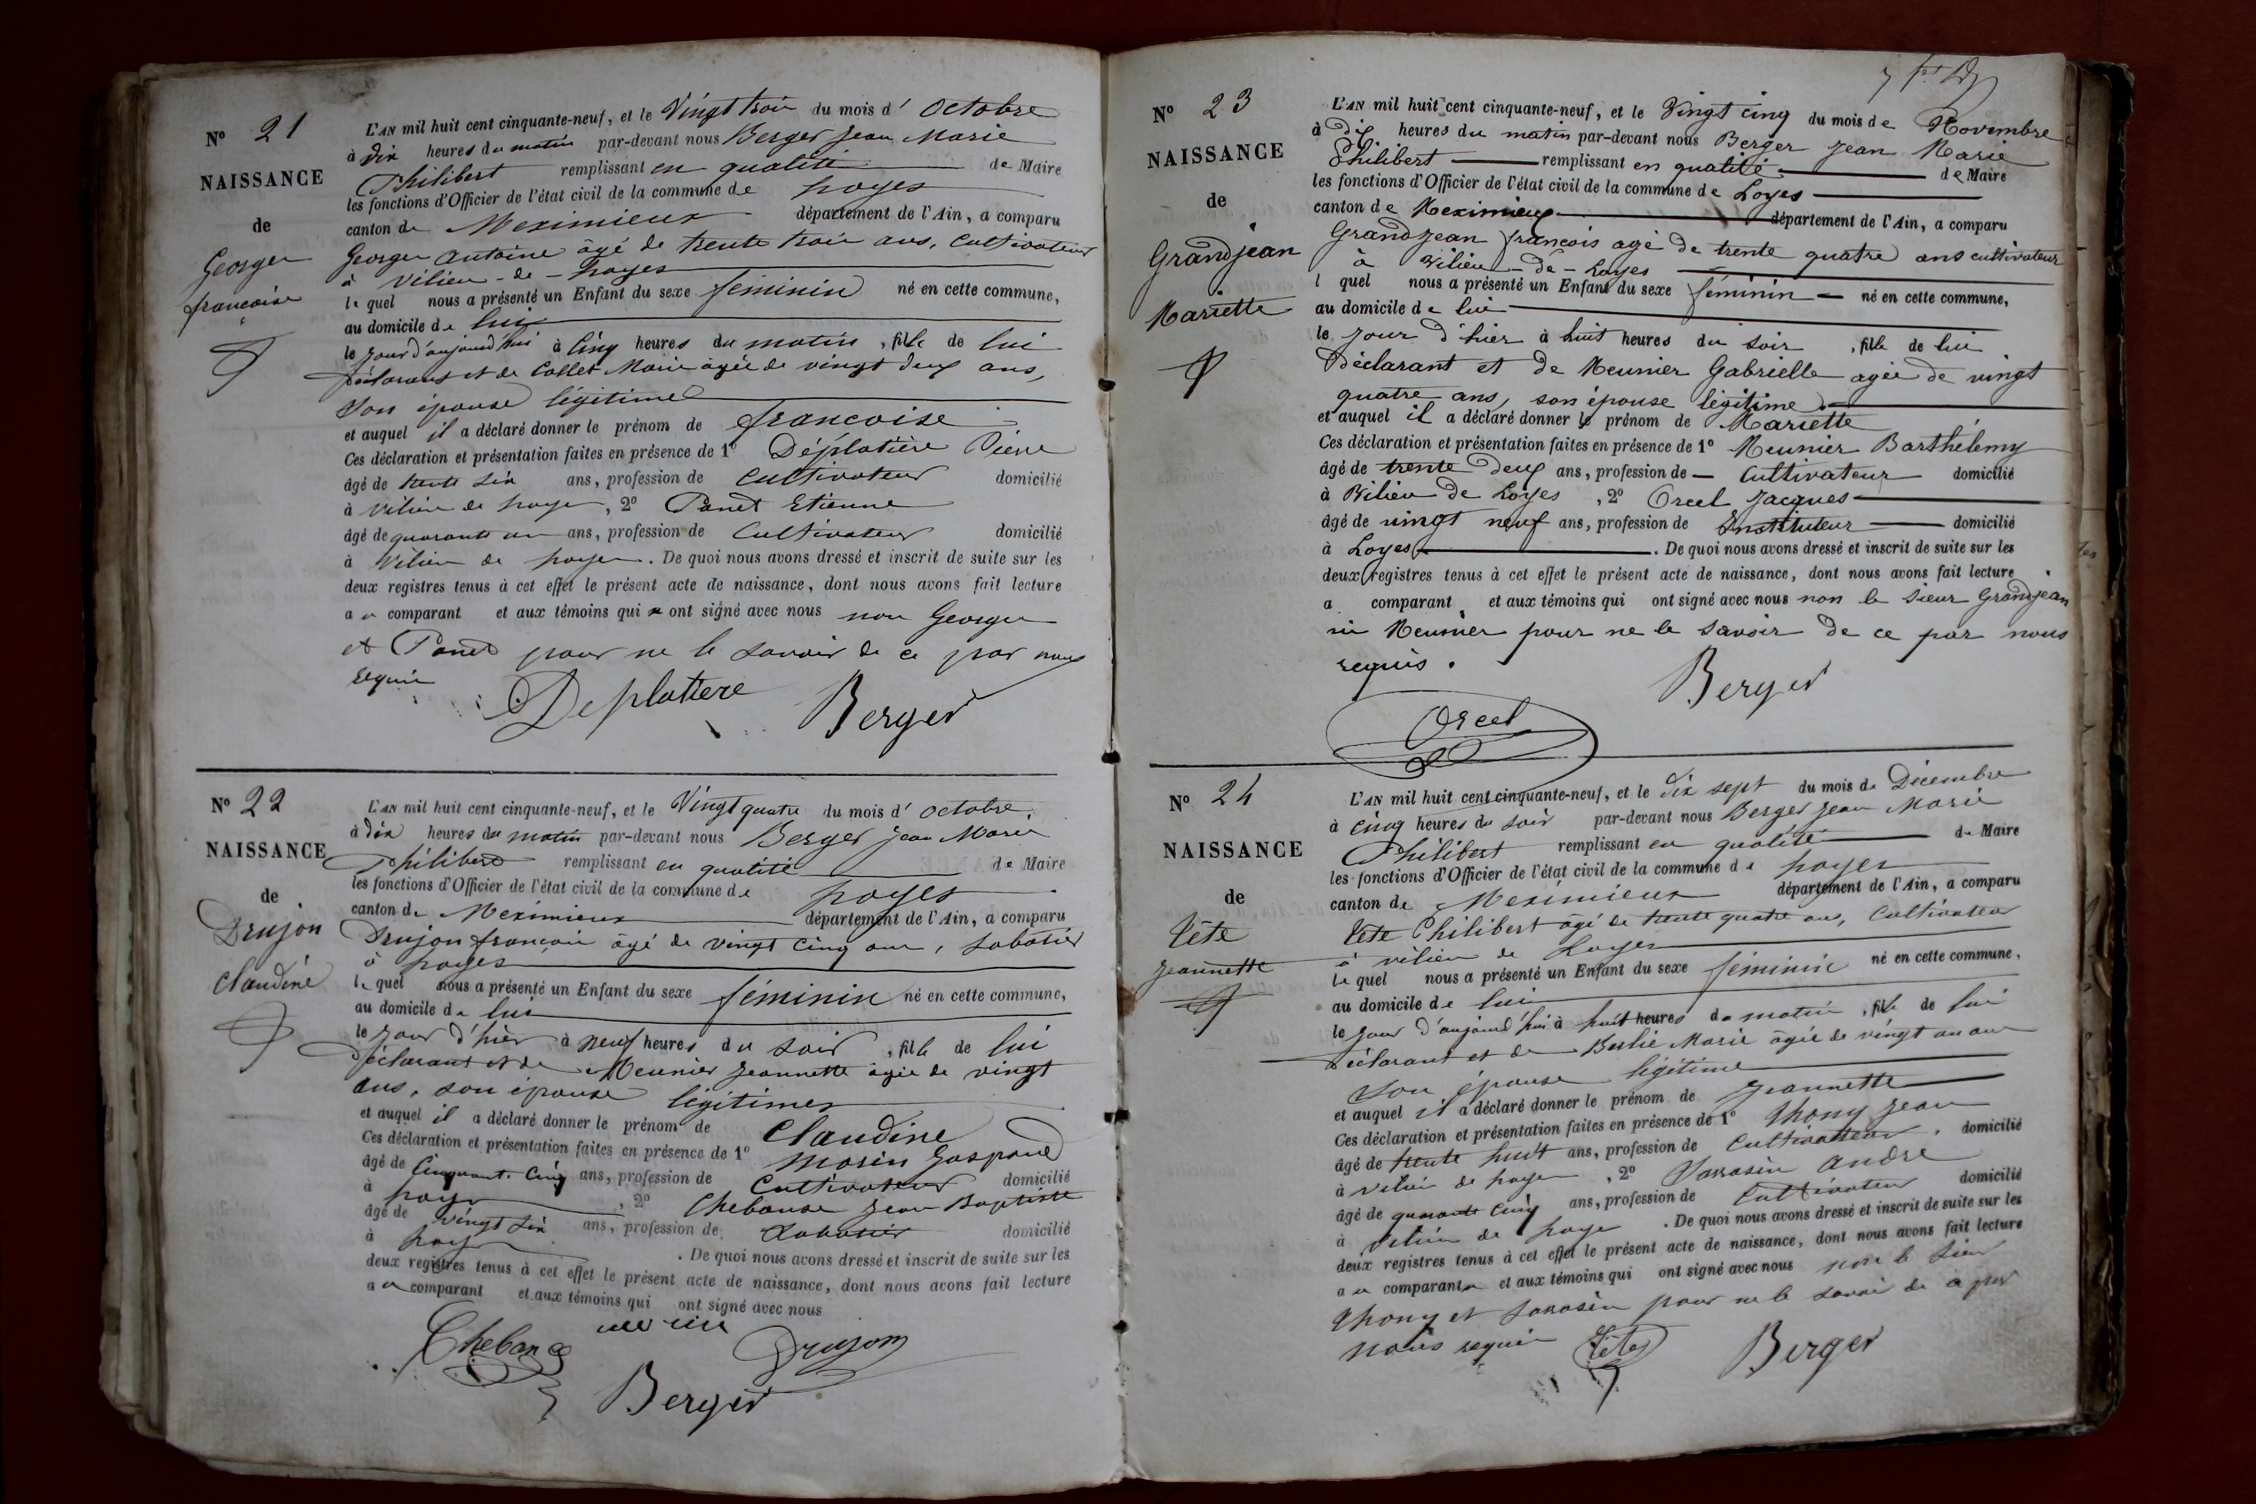 N° 21
NAISSANCE
de
Georges
françoise
L'AN mil huit cent cinquante-neuf, et le Vingt trois du mois d' Octobre
à dix heures du matin par-devant nous Berger Jean Marie
Philibert remplissant en qualité de Maire
les fonctions d'Officier de l'état civil de la commune de Loyes
canton de Meximieux département de l'Ain, a comparu
Georges Antoine âgé de trente trois ans, Cultivateur
à Vilieu - de - Loyes
lequel nous a présenté un Enfant du sexe féminin né en cette commune,
au domicile de lui
le jour d'aujourd'hui à Cinq heures du matin, fille de lui
déclarant et de Collet Marie âgée de vingt deux ans,
Son épouse légitime
et auquel il a déclaré donner le prénom de françoise
Ces déclaration et présentation faites en présence de 1° Déplatière Pierre
âgé de trente six ans, profession de Cultivateur domicilié
à Vilieu de Loyes, 2° Panet Etienne
âgé de quarante un ans, profession de Cultivateur domicilié
à Vilieu de Loyes. De quoi nous avons dressé et inscrit de suite sur les
deux registres tenus à cet effet le présent acte de naissance, dont nous avons fait lecture
au comparant et aux témoins qui ont signé avec nous non Georges
et Panet pour ne le savoir de ce par nous
requis
Deplatiere Berger
N° 22
NAISSANCE
de
Drujon
Claudine
L'AN mil huit cent cinquante-neuf, et le Vingt quatre du mois d' Octobre,
à dix heures du matin par-devant nous Berger Jean Marie
Philibert remplissant en qualité de Maire
les fonctions d'Officier de l'état civil de la commune de Loyes
canton de Meximieux département de l'Ain, a comparu
Drujon françois âgé de vingt cinq ans, Sabotier
à Loyes
lequel nous a présenté un Enfant du sexe féminin né en cette commune,
au domicile de lui
le jour d'hier à neuf heures du soir, fille de lui
déclarant et de Meunier Jeannette âgée de vingt
ans, son épouse légitime
et auquel il a déclaré donner le prénom de Claudine
Ces déclaration et présentation faites en présence de 1° Morin Gaspard
âgé de Cinquante Cinq ans, profession de Cultivateur domicilié
à Loyes, 2° Chebance Jean Baptiste
âgé de vingt six ans, profession de Sabotier domicilié
à Loyes. De quoi nous avons dressé et inscrit de suite sur les
deux registres tenus à cet effet le présent acte de naissance, dont nous avons fait lecture
au comparant et aux témoins qui ont signé avec nous
Chebance Drujon
Berger
N° 23
NAISSANCE
de
Grandjean
Mariette
L'AN mil huit cent cinquante-neuf, et le Vingt cinq du mois de Novembre
à dix heures du matin par-devant nous Berger Jean Marie
Philibert remplissant en qualité de Maire
les fonctions d'Officier de l'état civil de la commune de Loyes
canton de Meximieux département de l'Ain, a comparu
Grandjean françois agé de trente quatre ans cultivateur
à Vilieu - de - Loyes
l quel nous a présenté un Enfant du sexe féminin né en cette commune,
au domicile de lui
le jour d'hier à huit heures du soir, fille de lui
Déclarant et de Meunier Gabrielle agée de vingt
quatre ans, son épouse légitime
et auquel il a déclaré donner le prénom de Mariette
Ces déclaration et présentation faites en présence de 1° Meunier Barthélemy
âgé de trente deux ans, profession de Cultivateur domicilié
à Vilieu de Loyes, 2° Orcel Jacques
âgé de vingt neuf ans, profession de Instituteur domicilié
à Loyes. De quoi nous avons dressé et inscrit de suite sur les
deux registres tenus à cet effet le présent acte de naissance, dont nous avons fait lecture
a comparant et aux témoins qui ont signé avec nous non le sieur Grandjean
ni Meunier pour ne le savoir de ce par nous
requis.
Berger
Orcel
N° 24
NAISSANCE
de
Tête
Jeannette
L'AN mil huit cent cinquante-neuf, et le dix sept du mois de Décembre
à cinq heures du soir par-devant nous Berger Jean Marie
Philibert remplissant en qualité de Maire
les fonctions d'Officier de l'état civil de la commune de Loyes
canton de Meximieux département de l'Ain, a comparu
Tête Philibert âgé de trente quatre ans, Cultivateur
à vilieu de Loyes
lequel nous a présenté un Enfant du sexe féminin né en cette commune,
au domicile de lui
le jour d'aujourd'hui à huit heures du matin, fille de lui
déclarant et de Marie âgée de vingt un ans
Son épouse légitime
et auquel il a déclaré donner le prénom de Jeannette
Ces déclaration et présentation faites en présence de 1° Thony Jean
âgé de trente huit ans, profession de Cultivateur, domicilié
à Vilieu de Loyes, 2° Sarasin André
âgé de quarante cinq ans, profession de Cultivateur domicilié
à Vilieu de Loyes. De quoi nous avons dressé et inscrit de suite sur les
deux registres tenus à cet effet le présent acte de naissance, dont nous avons fait lecture
au comparant et aux témoins qui ont signé avec nous non le Sieur
Thony et Sarasin pour ne le savoir de ce par
nous requis Tête Berger